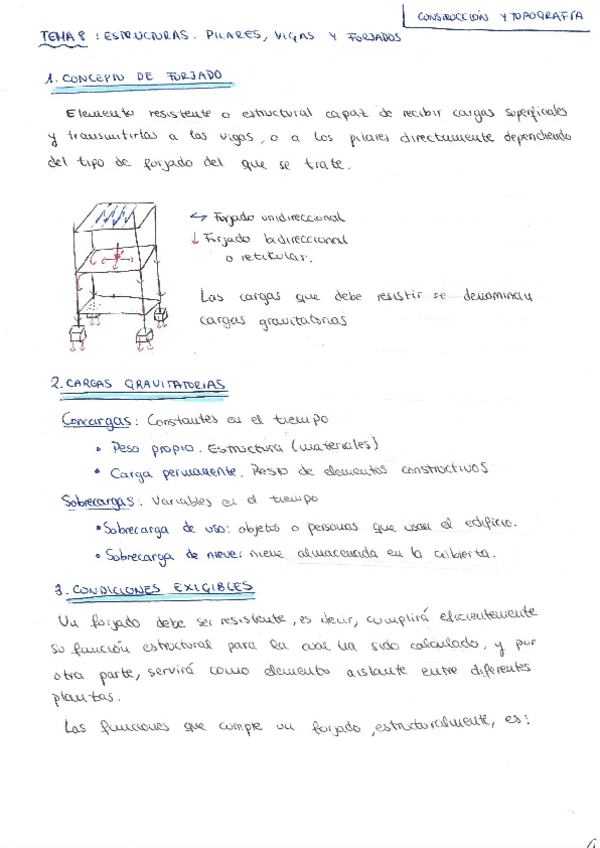 CONSTRUCCIÓN Y TOPOGRAFÍA
TEMA 8: ESTRUCTURAS. PILARES, VIGAS Y FORJADOS
1. CONCEPTO DE FORJADO
Elemento resistente o estructural capaz de recibir cargas superficiales
y transmitirlas a las vigas, o a los pilares directamente dependiendo
del tipo de forjado del que se trate.
↳ Forjado unidireccional
↓ Forjado bidireccional
o reticular.
Las cargas que debe resistir se denominan
cargas gravitatorias
2. CARGAS GRAVITATORIAS
Concargas: Constantes en el tiempo
• Peso propio. Estructura (materiales)
• Carga permanente. Resto de elementos constructivos
Sobrecargas: Variables en el tiempo
• Sobrecarga de uso: objetos o personas que usan el edificio.
• Sobrecarga de nieve: nieve almacenada en la cubierta.
3. CONDICIONES EXIGIBLES
Un forjado debe ser resistente, es decir, cumplirá eficientemente
su función estructural para la cual ha sido calculado, y por
otra parte, servirá como elemento aislante entre diferentes
plantas.
Las funciones que cumple un forjado, estructuralmente, es: